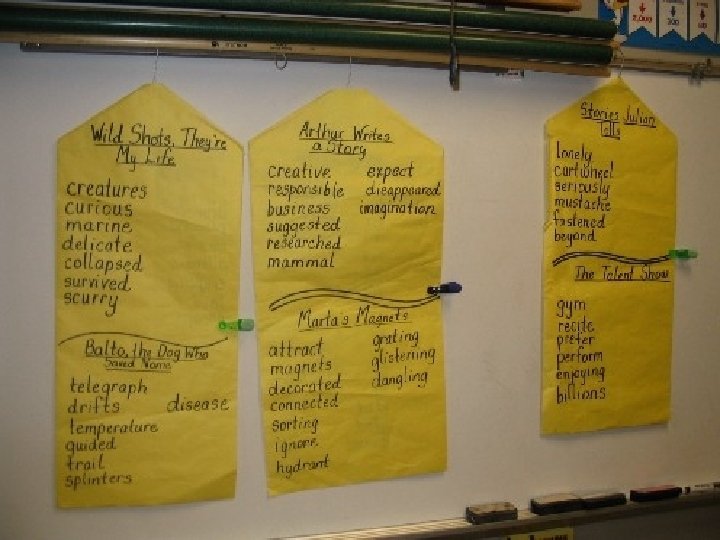 Wild Shots, They're
My Life
creatures
curious
marine
delicate
collapsed
survived
scurry
Balto, the Dog Who
Saved Nome
telegraph
drifts disease
temperature
guided
trail
splinters
Arthur Writes
a Story
creative expect
responsible disappeared
business imagination
suggested
researched
mammal
Marta's Magnets
attract grating
magnets glistening
decorated dangling
connected
sorting
ignore
hydrant
Stories Julian
Tells
lonely
cartwheel
seriously
mustache
fastened
beyond
The Talent Show
gym
recite
prefer
perform
enjoying
billions